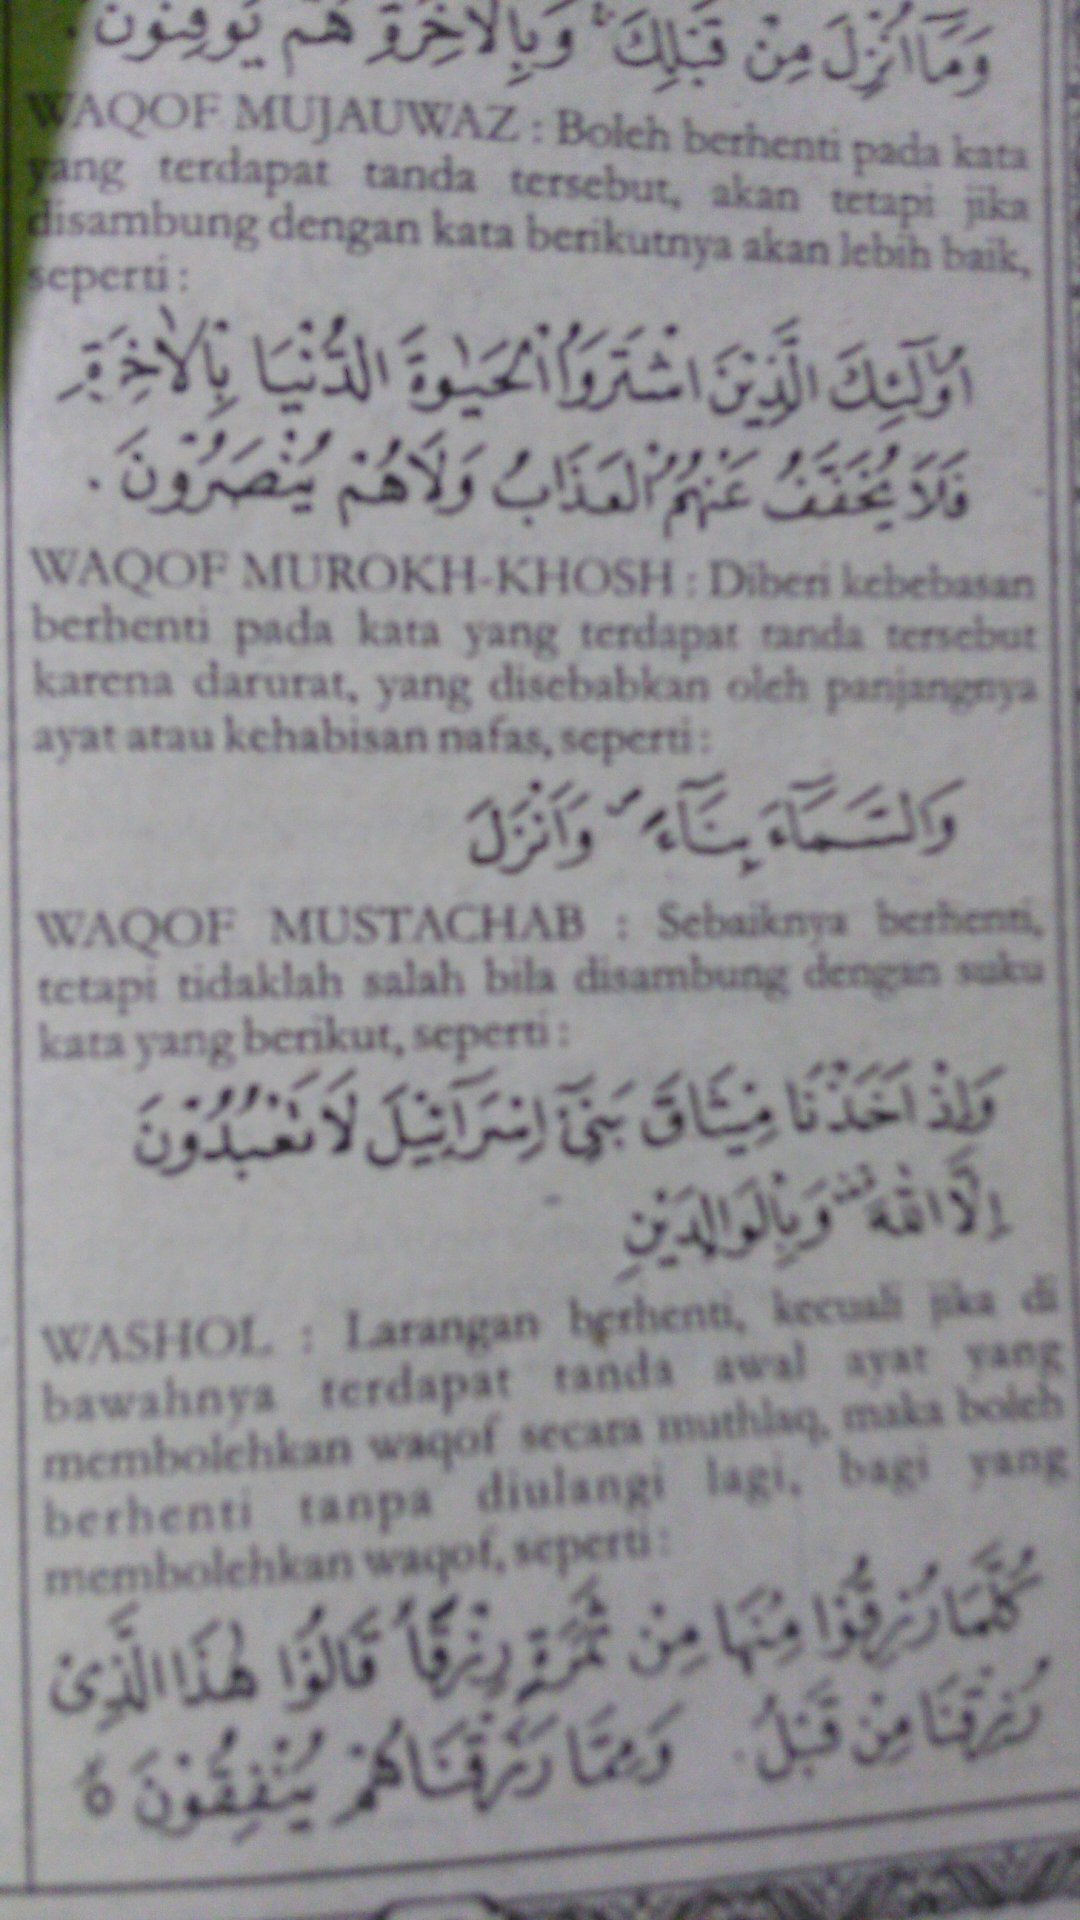 وَمَآ اُنْزِلَ مِنْ قَبْلِكَ ۚ وَبِالْاٰخِرَةِ هُمْ يُوْقِنُوْنَ .
WAQOF MUJAUWAZ : Boleh berhenti pada kata
yang terdapat tanda tersebut, akan tetapi jika
disambung dengan kata berikutnya akan lebih baik,
seperti :
اُولٰٓئِكَ الَّذِيْنَ اشْتَرَوُا الْحَيٰوةَ الدُّنْيَا بِالْاٰخِرَةِ ز
فَلَا يُخَفَّفُ عَنْهُمُ الْعَذَابُ وَلَا هُمْ يُنْصَرُوْنَ .
WAQOF MUROKH-KHOSH : Diberi kebebasan
berhenti pada kata yang terdapat tanda tersebut
karena darurat, yang disebabkan oleh panjangnya
ayat atau kehabisan nafas, seperti :
وَالسَّمَآءَ بِنَآءً ص وَاَنْزَلَ
WAQOF MUSTACHAB : Sebaiknya berhenti,
tetapi tidaklah salah bila disambung dengan suku
kata yang berikut, seperti :
وَاِذْ اَخَذْنَا مِيْثَاقَ بَنِيْٓ اِسْرَآئِيْلَ لَا تَعْبُدُوْنَ
اِلَّا اللهَ قف وَبِالْوَالِدَيْنِ
WASHOL : Larangan berhenti, kecuali jika di
bawahnya terdapat tanda awal ayat yang
membolehkan waqof secara muthlaq, maka boleh
berhenti tanpa diulangi lagi, bagi yang
membolehkan waqof, seperti :
كُلَّمَا رُزِقُوْا مِنْهَا مِنْ ثَمَرَةٍ رِزْقًا قَالُوْا هٰذَا الَّذِيْ
رُزِقْنَا مِنْ قَبْلُ . وَمِمَّا رَزَقْنَاكُمْ يُنْفِقُوْنَ ە